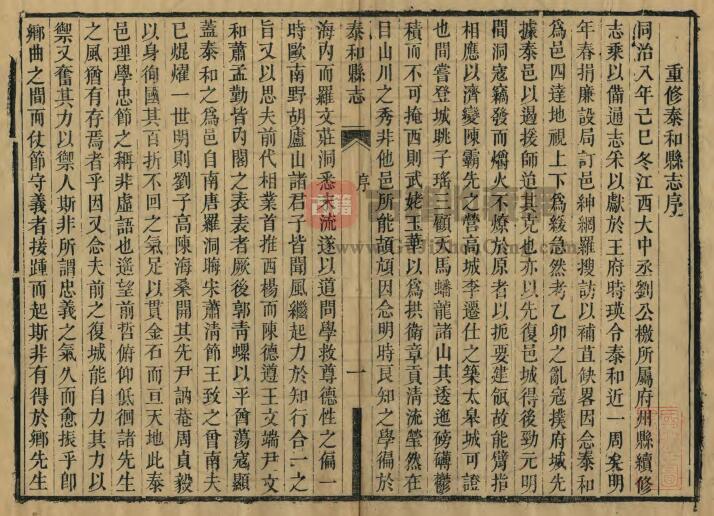 重修泰和縣志序
同治八年己巳冬江西大中丞劉公檄所屬府州縣續修
志乘以備通志采以獻於王府時瑛合泰和近一周矣明
年春捐廉設局訂邑紳網羅搜訪以補苴缺畧因念泰和
爲邑四達地視上下爲緩急然考乙卯之亂寇撲府城先
據泰邑以遏援師迨其克也亦以先復邑城得後勁元明
間洞寇竊發而爝火不燎於原者以扼要建瓴故能臂指
相應以濟變陳霸先之營高城李遷仕之築太皋城可證
也間嘗登城眺子瑤三顧天馬蟠龍諸山其透迤磅礡鬱
積而不可掩西則武姥玉華以爲拱衛章貢清流瑩然在
目山川之秀非他邑所能頡頏因念明時良知之學徧於
泰和縣志
序
一
海内而羅文莊洞悉末流遂以道問學救尊德性之偏一
時歐南野胡廬山諸君子皆聞風繼起力於知行合一之
旨又以思夫前代相業首推西楊而陳德遵王文端尹文
和蕭孟勤皆内閣之表表者厥後郭青螺以平酋蕩寇顯
蓋泰和之爲邑自南唐羅洞晦宋蕭清節王致之曾南夫
已焜燿一世明則劉子高陳海桑開其先尹訥菴周貞毅
以身徇國其百折不回之氣足以貫金石而亘天地此泰
邑理學忠節之稱非虛語也遥望前哲俯仰低徊諸先生
之風猶有存焉者乎因又念夫前之復城能自力其力以
禦又奮其力以禦人斯非所謂忠義之氣久而愈振乎即
鄉曲之間而仗節守義者接踵而起斯非有得於鄉先生